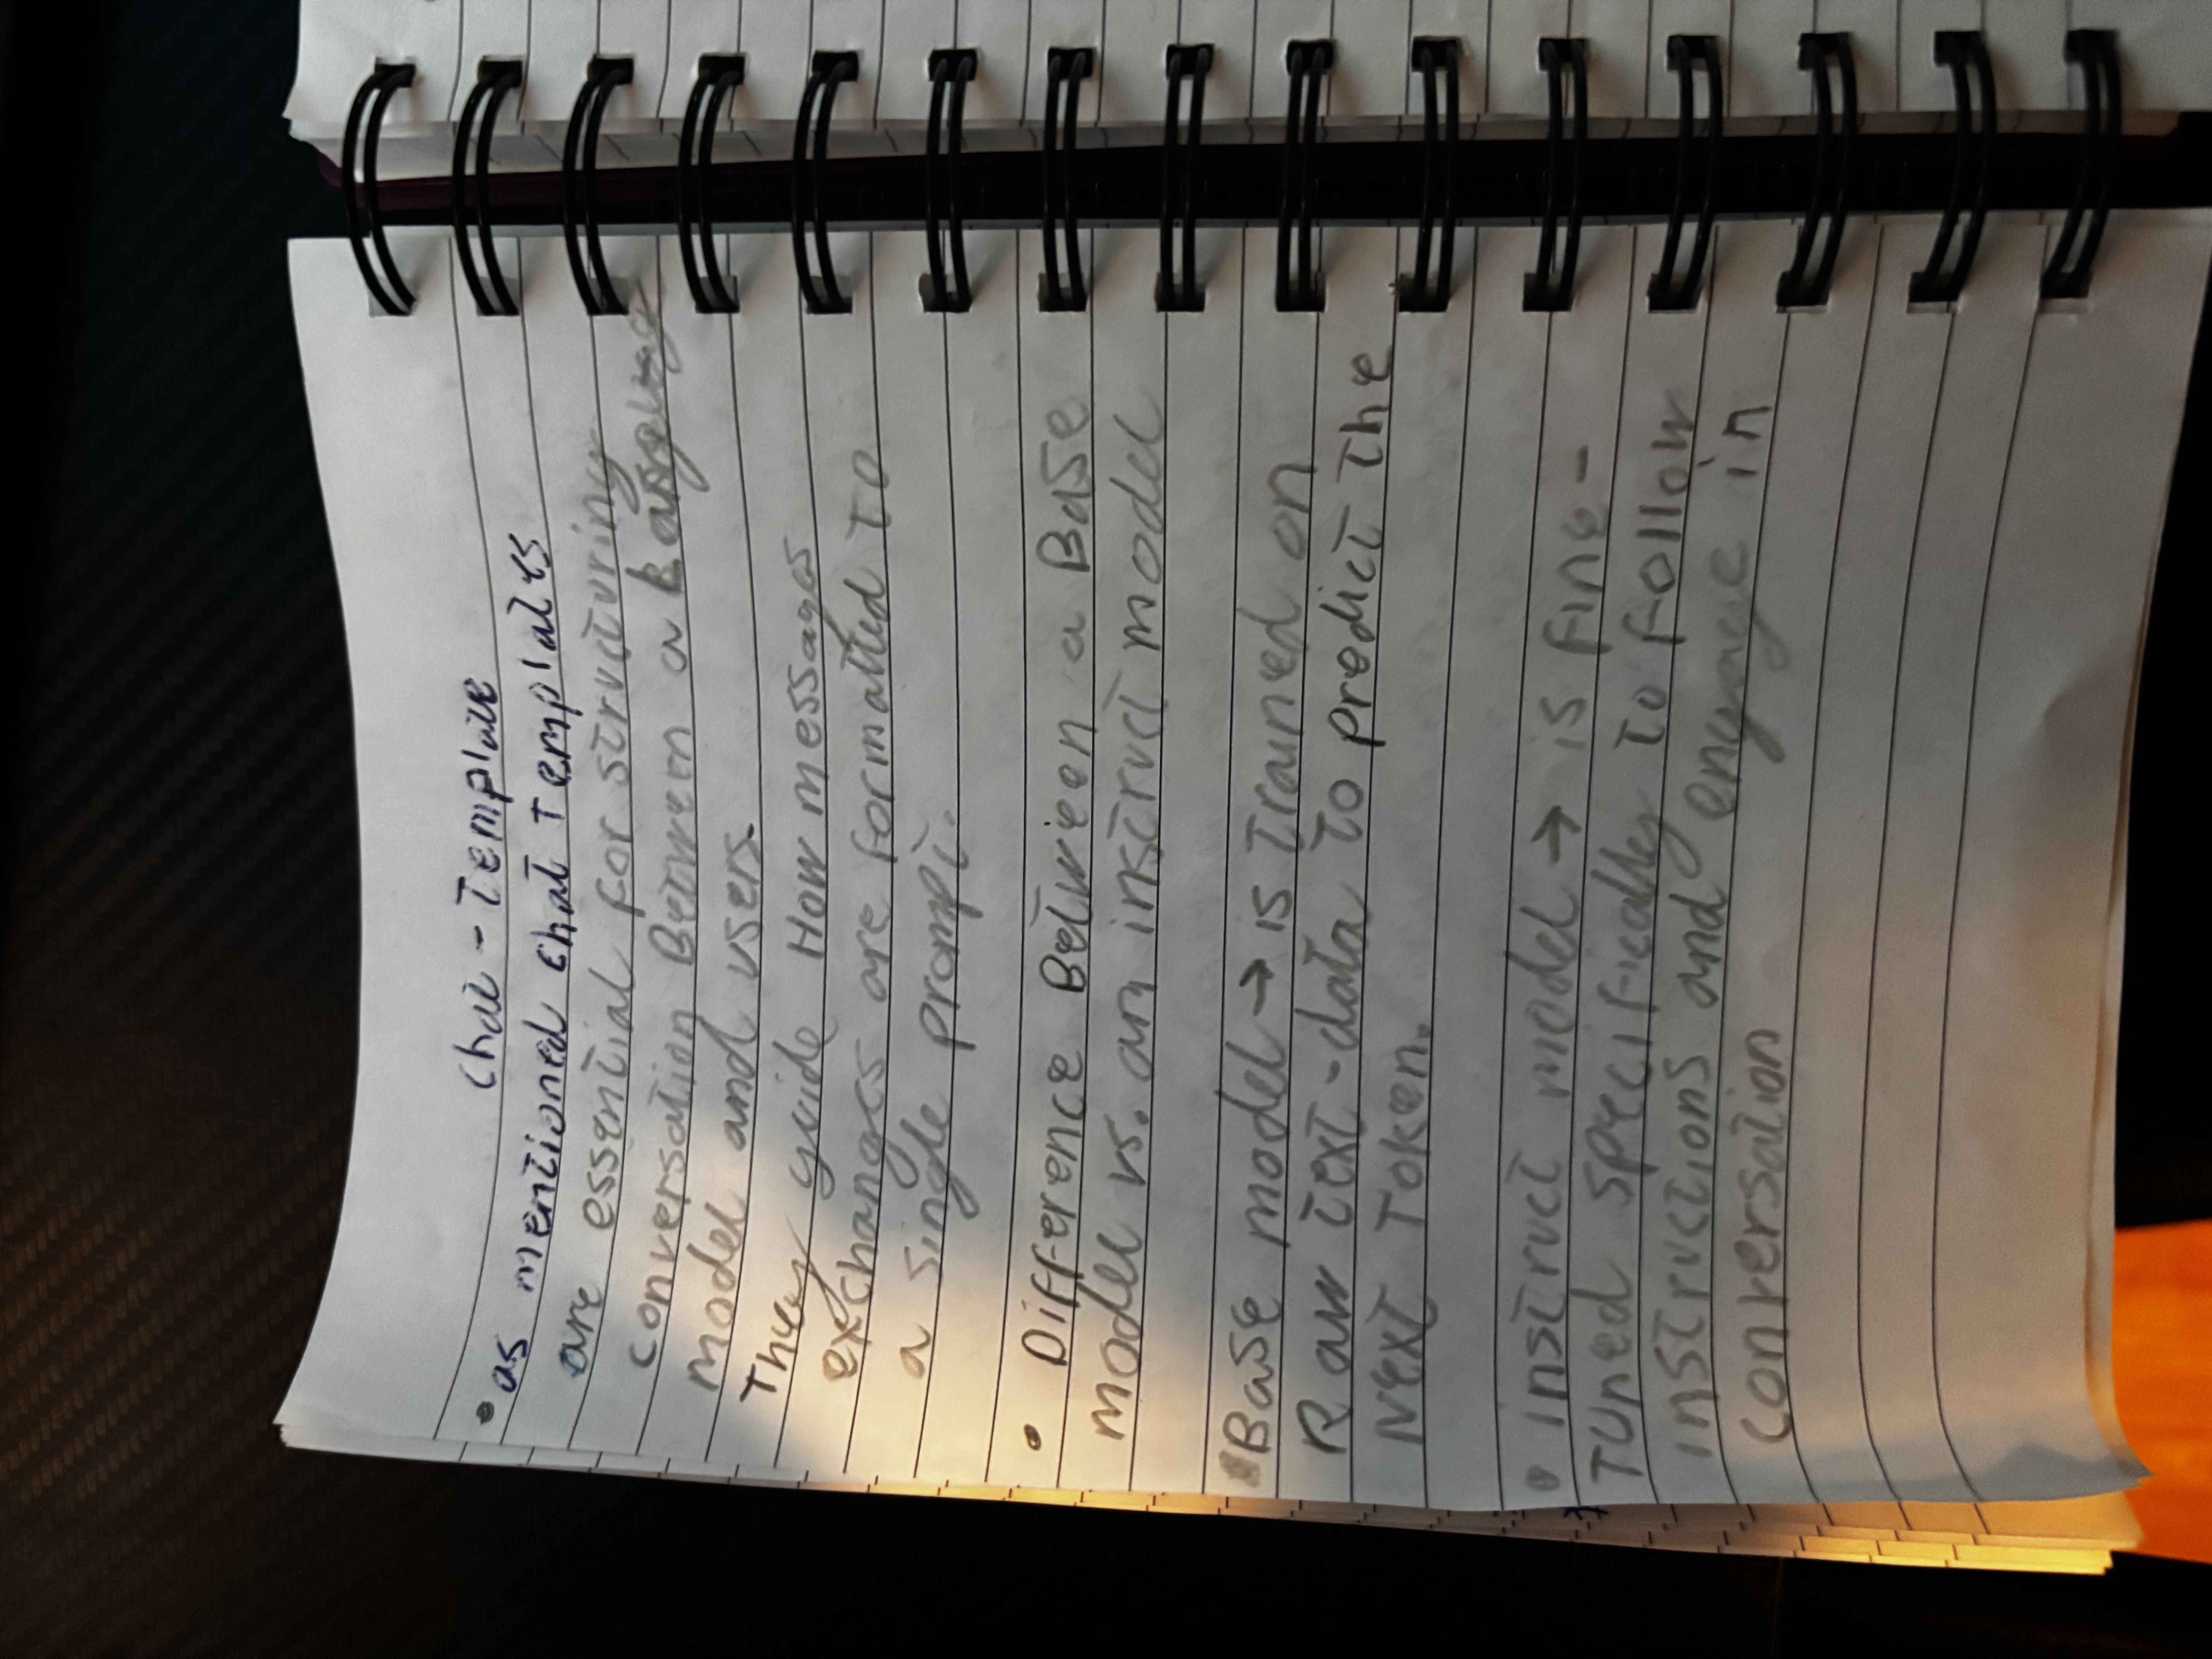 Chat - Template
• as mentioned chat Templates
are essential for structuring
conversation Between a Language
model and users.
They guide How messages
exchanges are formatted to
a single prompt.
• Difference Between a Base
model vs. an instruct model
Base model → is trained on
Raw text-data to predict the
Next Token.
• instruct model → is fine-
tuned specifically to follow
instructions and engage in
conversation